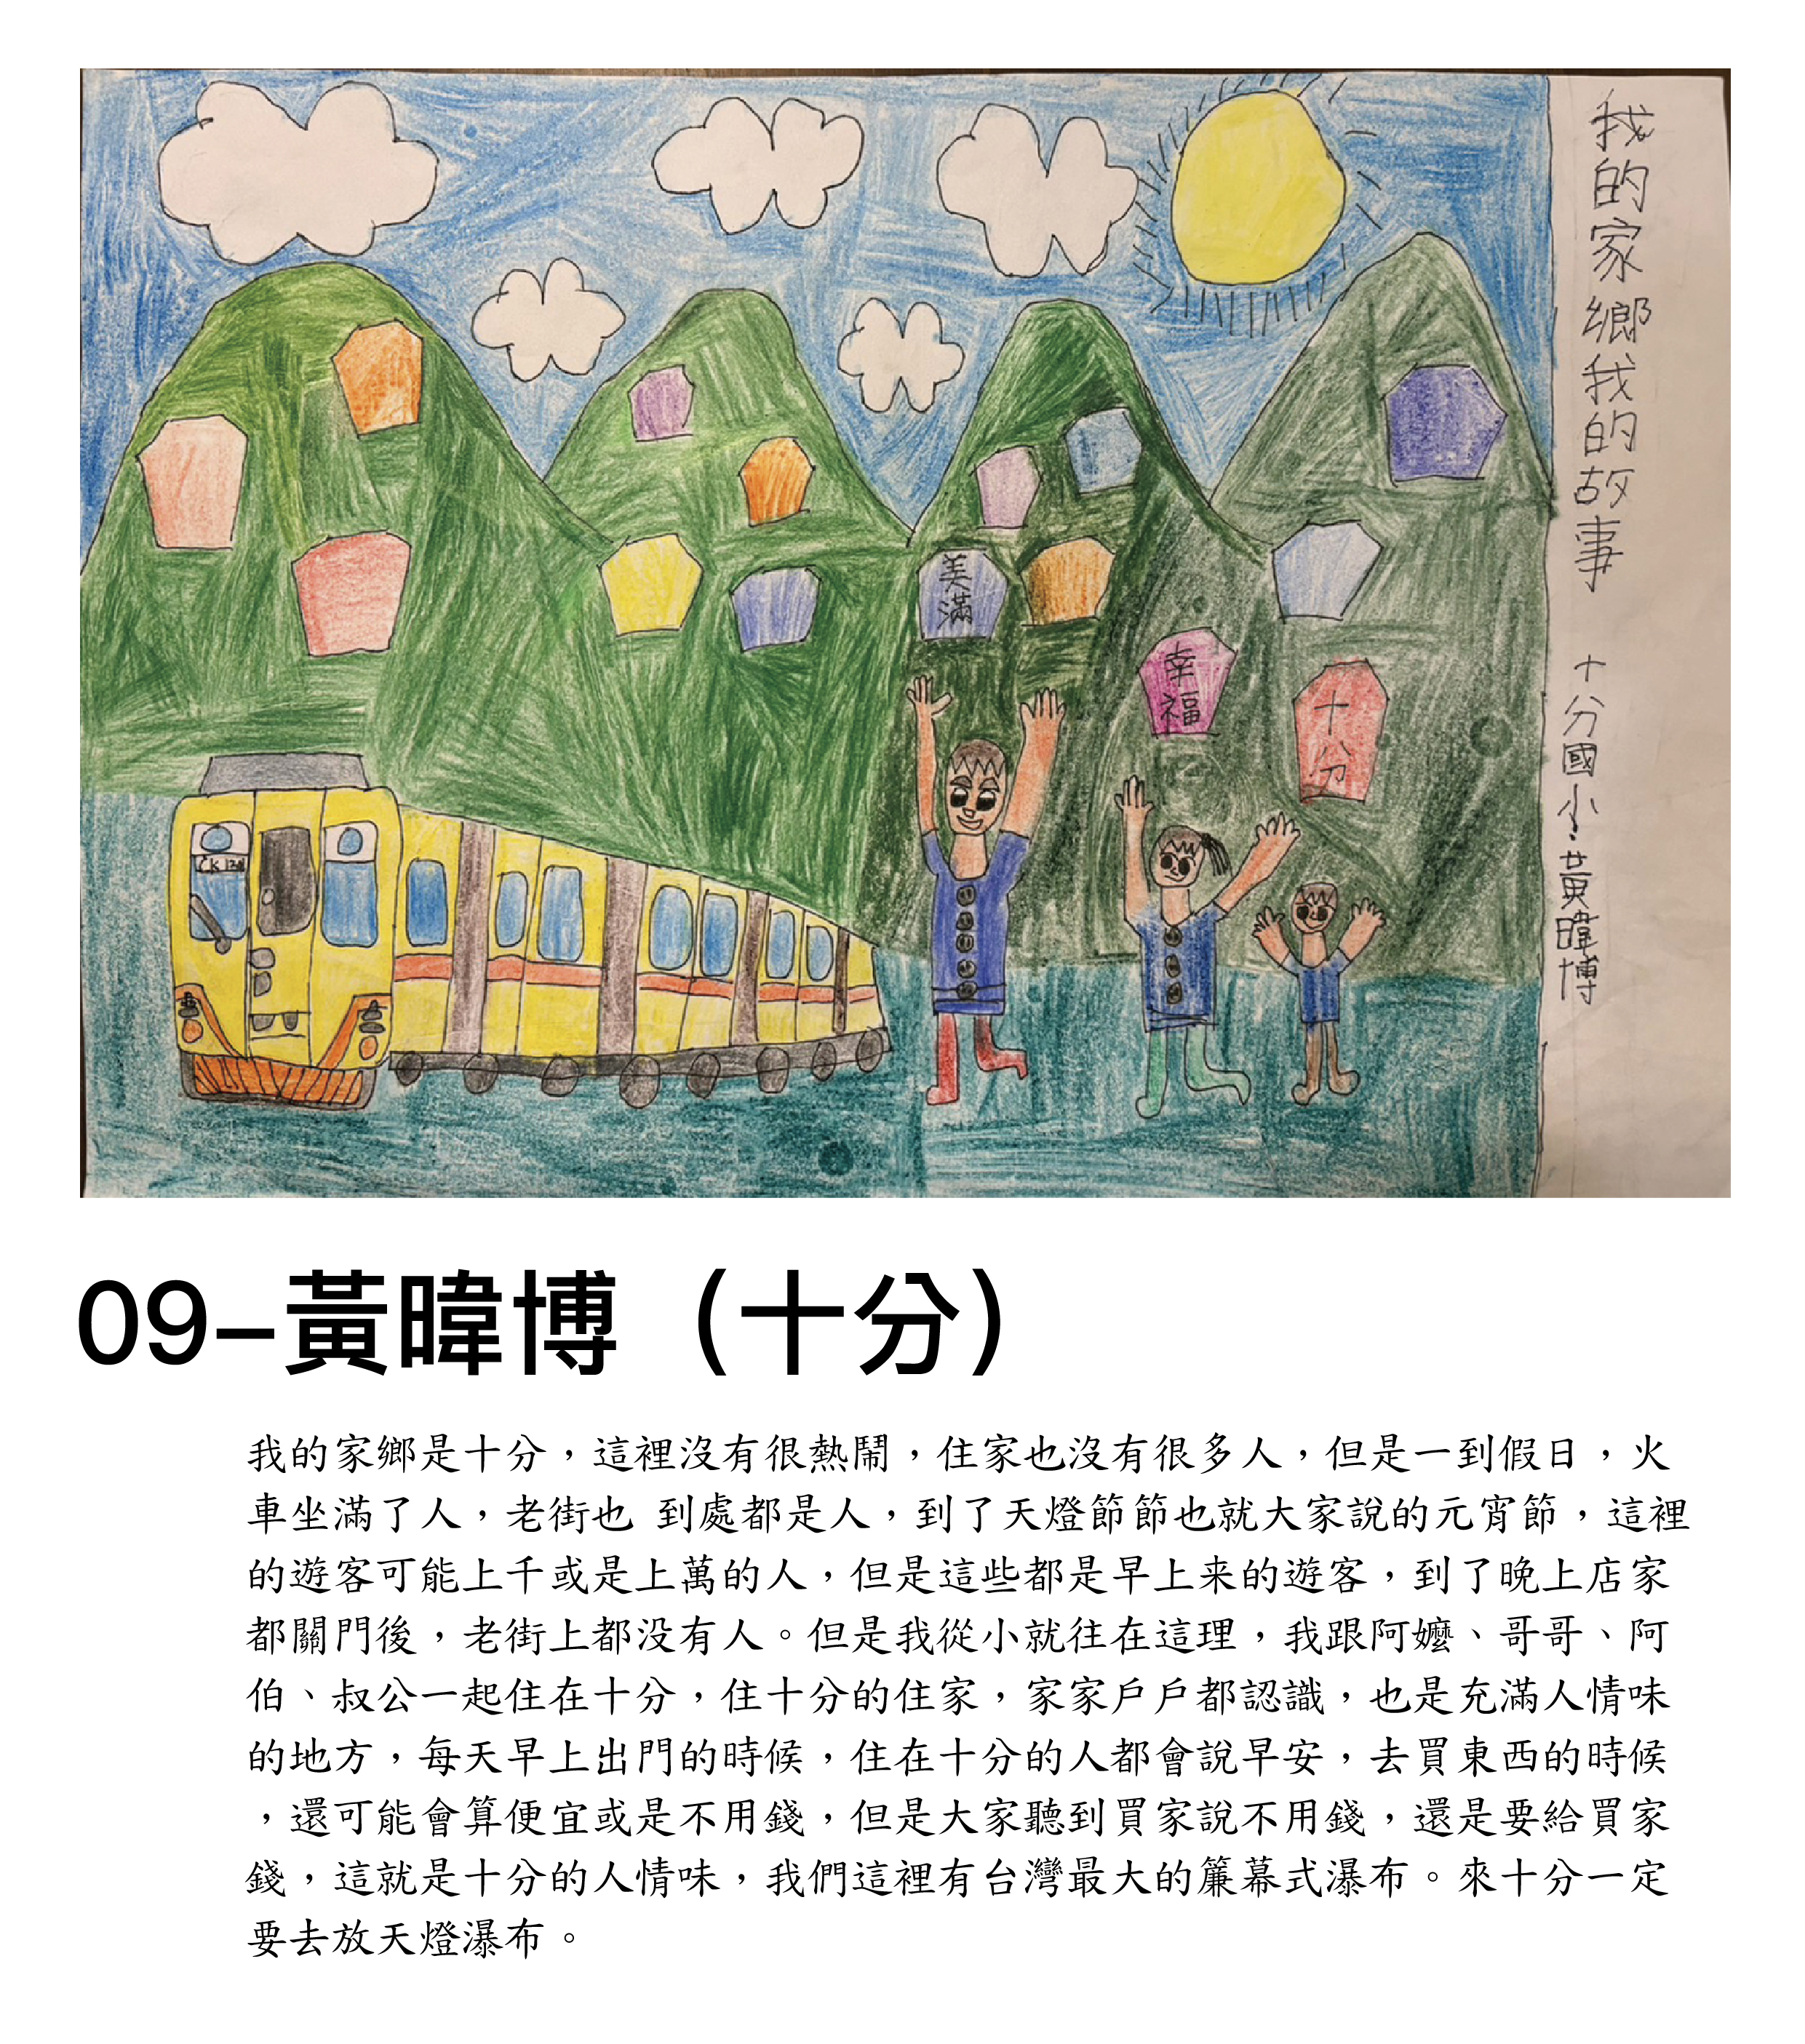 我的家鄉我的故事 十分國小:黃暐博
美滿
幸福
十分
09-黃暐博（十分）
我的家鄉是十分，這裡沒有很熱鬧，住家也沒有很多人，但是一到假日，火
車坐滿了人，老街也 到處都是人，到了天燈節節也就大家說的元宵節，這裡
的遊客可能上千或是上萬的人，但是這些都是早上来的遊客，到了晚上店家
都關門後，老街上都没有人。但是我從小就往在這理，我跟阿嬤、哥哥、阿
伯、叔公一起住在十分，住十分的住家，家家戶戶都認識，也是充滿人情味
的地方，每天早上出門的時候，住在十分的人都會說早安，去買東西的時候
，還可能會算便宜或是不用錢，但是大家聽到買家說不用錢，還是要給買家
錢，這就是十分的人情味，我們這裡有台灣最大的簾幕式瀑布。來十分一定
要去放天燈瀑布。